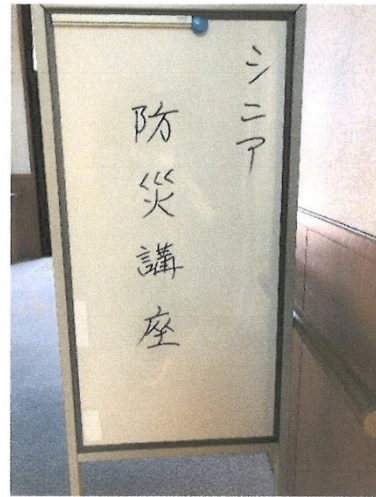 シニア
防災講座